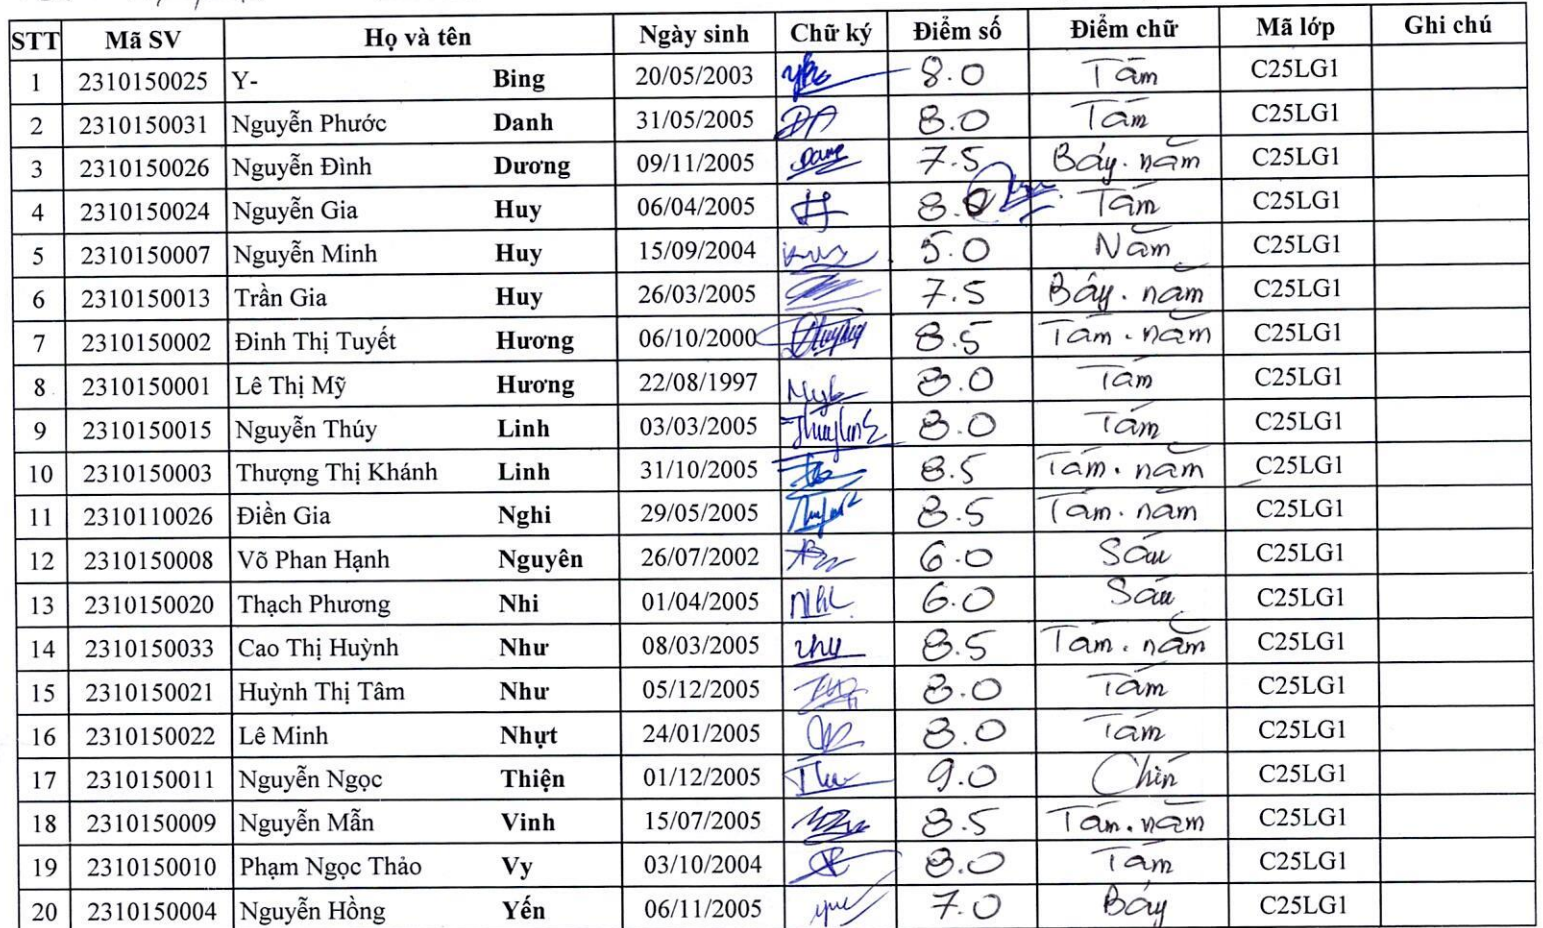 STT Mã SV Họ và tên Ngày sinh Chữ ký Điểm số Điểm chữ Mã lớp Ghi chú
1 2310150025 Y- Bing 20/05/2003 8.0 Tám C25LG1
2 2310150031 Nguyễn Phước Danh 31/05/2005 8.0 Tám C25LG1
3 2310150026 Nguyễn Đình Dương 09/11/2005 7.5 Bảy. năm C25LG1
4 2310150024 Nguyễn Gia Huy 06/04/2005 8.0 Tám C25LG1
5 2310150007 Nguyễn Minh Huy 15/09/2004 5.0 Năm C25LG1
6 2310150013 Trần Gia Huy 26/03/2005 7.5 Bảy. năm C25LG1
7 2310150002 Đinh Thị Tuyết Hương 06/10/2000 8.5 Tám. năm C25LG1
8 2310150001 Lê Thị Mỹ Hương 22/08/1997 8.0 Tám C25LG1
9 2310150015 Nguyễn Thúy Linh 03/03/2005 8.0 Tám C25LG1
10 2310150003 Thượng Thị Khánh Linh 31/10/2005 8.5 Tám. năm C25LG1
11 2310110026 Điền Gia Nghi 29/05/2005 8.5 Tám. năm C25LG1
12 2310150008 Võ Phan Hạnh Nguyên 26/07/2002 6.0 Sáu C25LG1
13 2310150020 Thạch Phương Nhi 01/04/2005 6.0 Sáu C25LG1
14 2310150033 Cao Thị Huỳnh Như 08/03/2005 8.5 Tám. năm C25LG1
15 2310150021 Huỳnh Thị Tâm Như 05/12/2005 8.0 Tám C25LG1
16 2310150022 Lê Minh Nhựt 24/01/2005 8.0 Tám C25LG1
17 2310150011 Nguyễn Ngọc Thiện 01/12/2005 9.0 Chín C25LG1
18 2310150009 Nguyễn Mẫn Vinh 15/07/2005 8.5 Tám. năm C25LG1
19 2310150010 Phạm Ngọc Thảo Vy 03/10/2004 8.0 Tám C25LG1
20 2310150004 Nguyễn Hồng Yến 06/11/2005 7.0 Bảy C25LG1